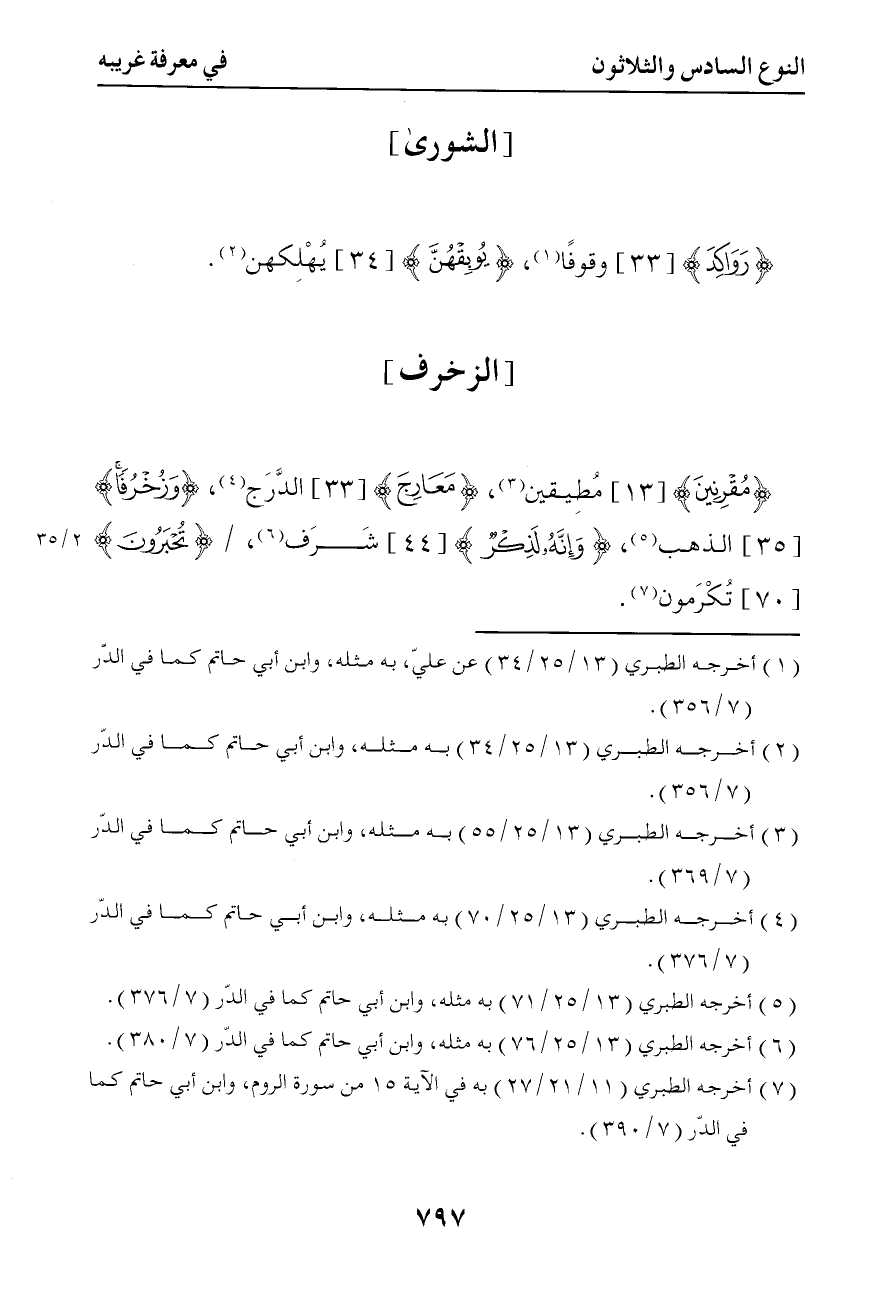 النوع السادس والثلاثون في معرفة غريبه
[الشورىٰ]
﴿رَوَاكِدَ﴾ [٣٣] وقوفًا(١)، ﴿يُوبِقْهُنَّ﴾ [٣٤] يُهْلِكهن(٢).
[الزخرف]
﴿مُقْرِنِينَ﴾ [١٣] مُطيقين(٣)، ﴿مَعَارِجَ﴾ [٣٣] الدَّرَج(٤)، ﴿وَزُخْرُفًاۚ﴾
[٣٥] الذهب(٥)، ﴿وَإِنَّهُۥ لَذِكْرٌ﴾ [٤٤] شَـرَف(٦)، / ﴿تُحْبَرُونَ﴾ ٣٥/٢
[٧٠] تُكْرَمون(٧).
(١) أخرجه الطبري (٣٤/٢٥/١٣) عن عليّ، به مثله، وابن أبي حاتم كما في الدّر
(٣٥٦/٧).
(٢) أخرجه الطبري (٣٤/٢٥/١٣) به مثله، وابن أبي حاتم كما في الدّر
(٣٥٦/٧).
(٣) أخرجه الطبري (٥٥/٢٥/١٣) به مثله، وابن أبي حاتم كما في الدّر
(٣٦٩/٧).
(٤) أخرجه الطبري (٧٠/٢٥/١٣) به مثله، وابن أبي حاتم كما في الدّر
(٣٧٦/٧).
(٥) أخرجه الطبري (٧١/٢٥/١٣) به مثله، وابن أبي حاتم كما في الدّر (٣٧٦/٧).
(٦) أخرجه الطبري (٧٦/٢٥/١٣) به مثله، وابن أبي حاتم كما في الدّر (٣٨٠/٧).
(٧) أخرجه الطبري (٢٧/٢١/١١) به في الآية ١٥ من سورة الروم، وابن أبي حاتم كما
في الدّر (٣٩٠/٧).
٧٩٧